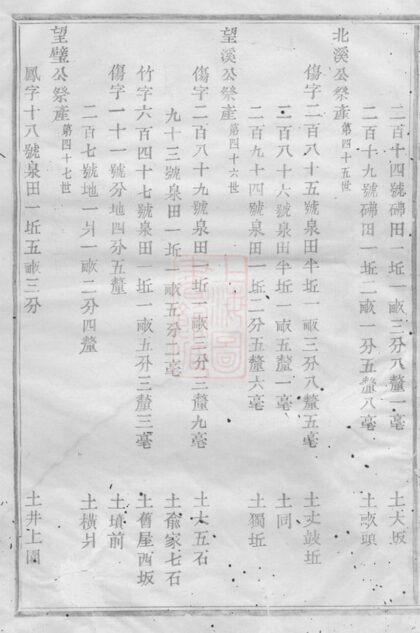 二百十四號磗田一坵一畝三分八釐一毫 土大坂
二百十九號磗田一坵二畝一分五釐八毫 土畝頭
北溪公祭產第四十五世
傷字二百八十五號泉田半坵一畝三分八釐五毫 土丈鼓坵
二百八十六號泉田半坵一畝五釐一毫 土同
二百九十四號泉田一坵二分五釐六毫 土獨坵
望溪公祭產第四十六世
傷字二百八十九號泉田一坵一畝三分三釐九毫 土大五石
九十三號泉田一坵一畝五分二毫 土兪家七石
竹字六百四十七號泉田一坵一畝五分三釐三毫 土舊屋西坂
傷字一十一號分地四分五釐 土墳前
二百七號地一爿一畝二分四釐 土橫爿
望璧公祭產第四十七世
鳳字十八號泉田一坵五畝三分 土井上園